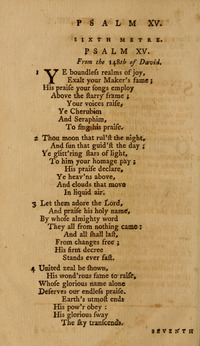 PSALM XV.
SIXTH METRE.
PSALM XV.
From the 148th of David.
1 YE boundless realms of joy,
Exalt your Maker's fame;
His praise your songs employ
Above the starry frame;
Your voices raise,
Ye Cherubim
And Seraphim,
To sing his praise.
2 Thou moon that rul'st the night,
And sun that guid'st the day;
Ye glitt'ring stars of light,
To him your homage pay;
His praise declare,
Ye heav'ns above,
And clouds that move
In liquid air.
3 Let them adore the Lord,
And praise his holy name,
By whose almighty word
They all from nothing came:
And all shall last,
From changes free;
His firm decree
Stands ever fast.
4 United zeal be shown,
His wond'rous fame to raise,
Whose glorious name alone
Deserves our endless praise.
Earth's utmost ends
His pow'r obey:
His glorious sway
The sky transcends.
SEVENTH